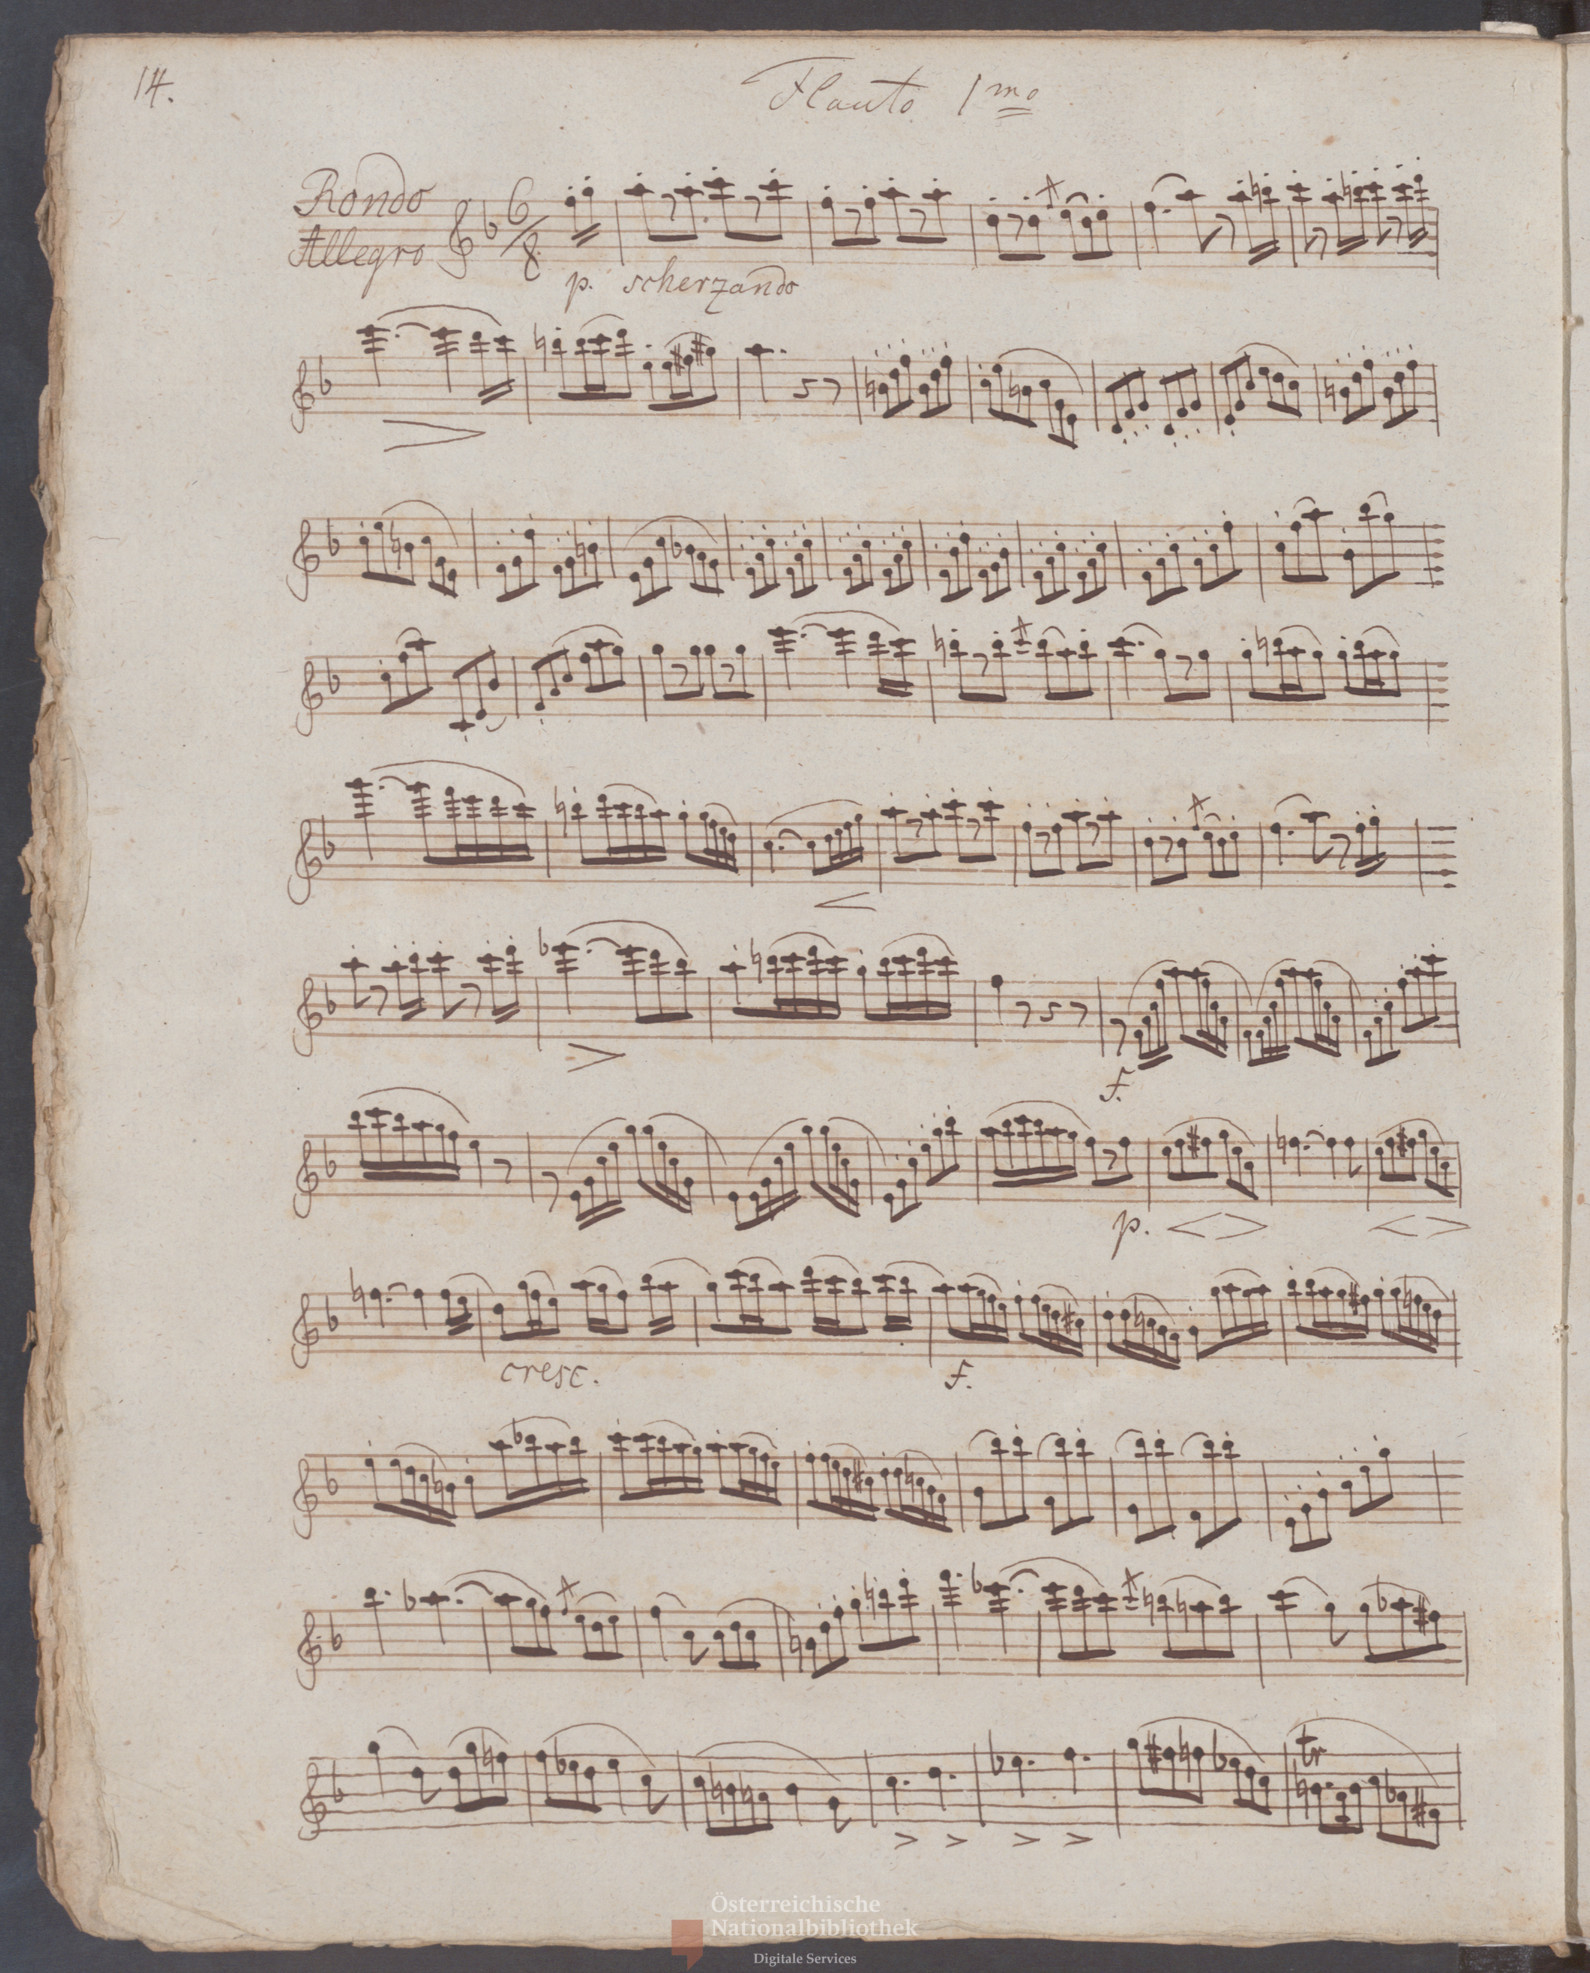 14.
Flauto 1mo
Rondo
Allegro
6/8
p. scherzando
f.
p.
cresc.
f.
tr
Österreichische
Nationalbibliothek
Digitale Services